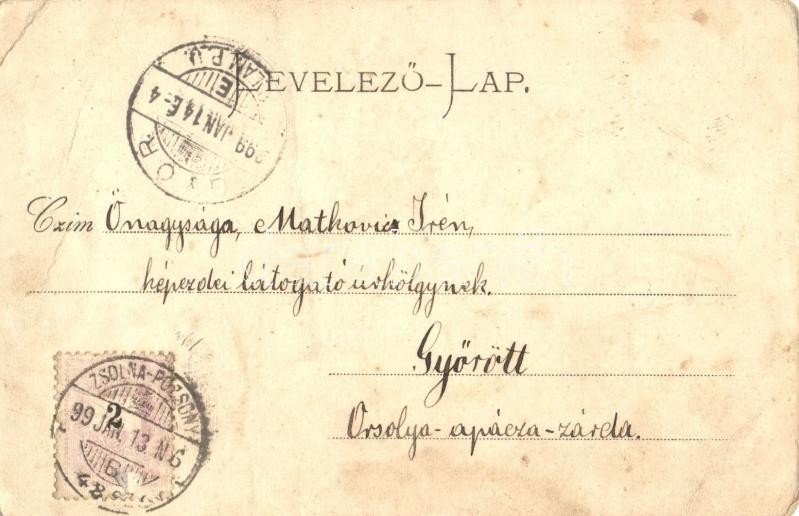 LEVELEZŐ-LAP.
GYŐR
899 JAN 14 E-4
Czim Őnagysága, Matkovics Irén,
képezdei látogató úrhölgynek.
Győrött
Orsolya-apácza-zárda.
ZSOLNA-POZSONY
2
99 JAN. 13 N6